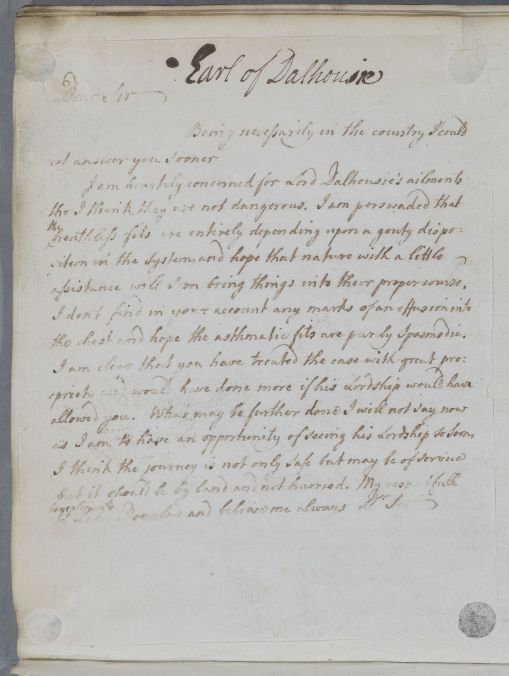 Earl of Dalhousie
Dear Sir
Being necessarily in the country I could
not answer you sooner
I am heartily concerned for Lord Dalhousie's ailments
tho I think they are not dangerous. I am perswaded that
the
breathless fits are entirely depending upon a gouty dispo-
sition in the system, and hope that nature with a little
assistance will soon bring things into their proper course.
I don't find in your account any marks of an effusion into
the chest and hope the asthmatic fits are purely Spasmodic.
I am clear that you have treated the case with great pro-
priety and would have done more if his Lordship would have
allowed you. What may be further done I will not say now
as I am to have an opportunity of seeing his Lordship so soon,
I think the journey is not only safe but may be of service
but it should be by land and not hurried. My respectfull
compliments
to Douglas and believe me always Dr S